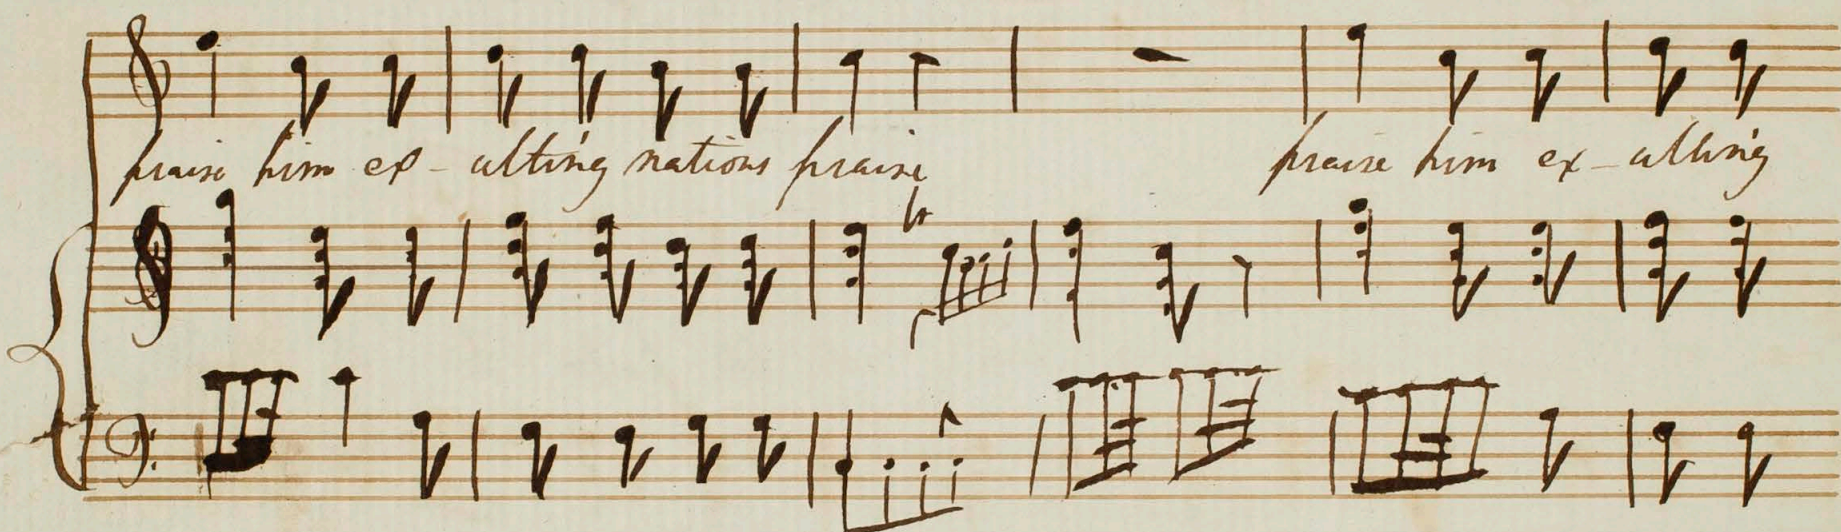 praise him ex - ulting nations praise praise him ex - ulting
tr